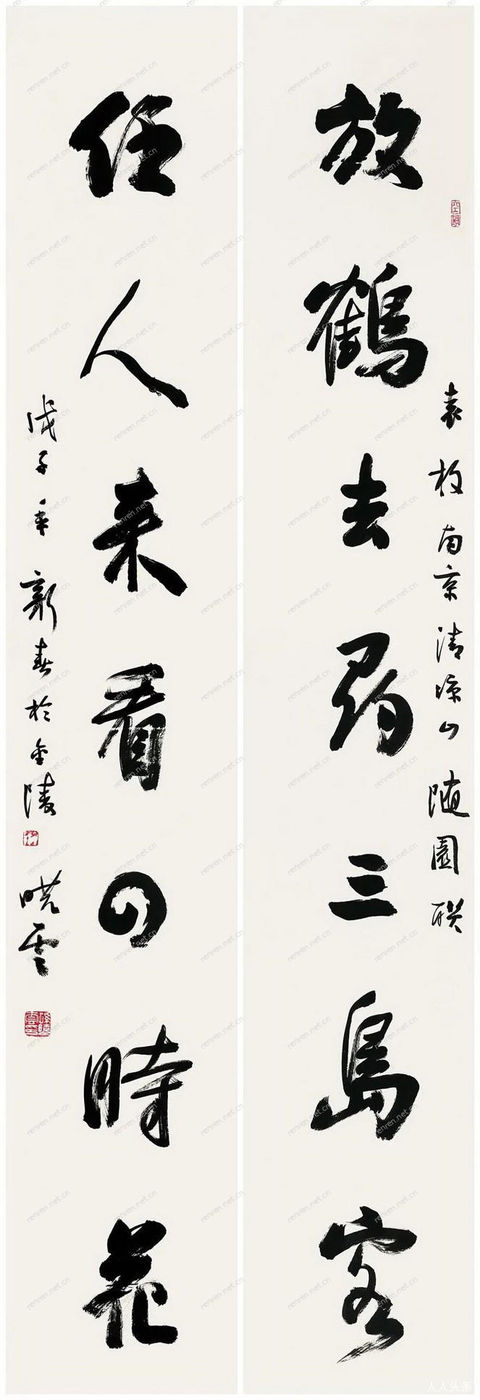 放鶴去尋三島客
袁枚南京清凉山随園联
任人来看四時花
戊子年新春於金陵
晓雲
renren.net.cn
人人头条